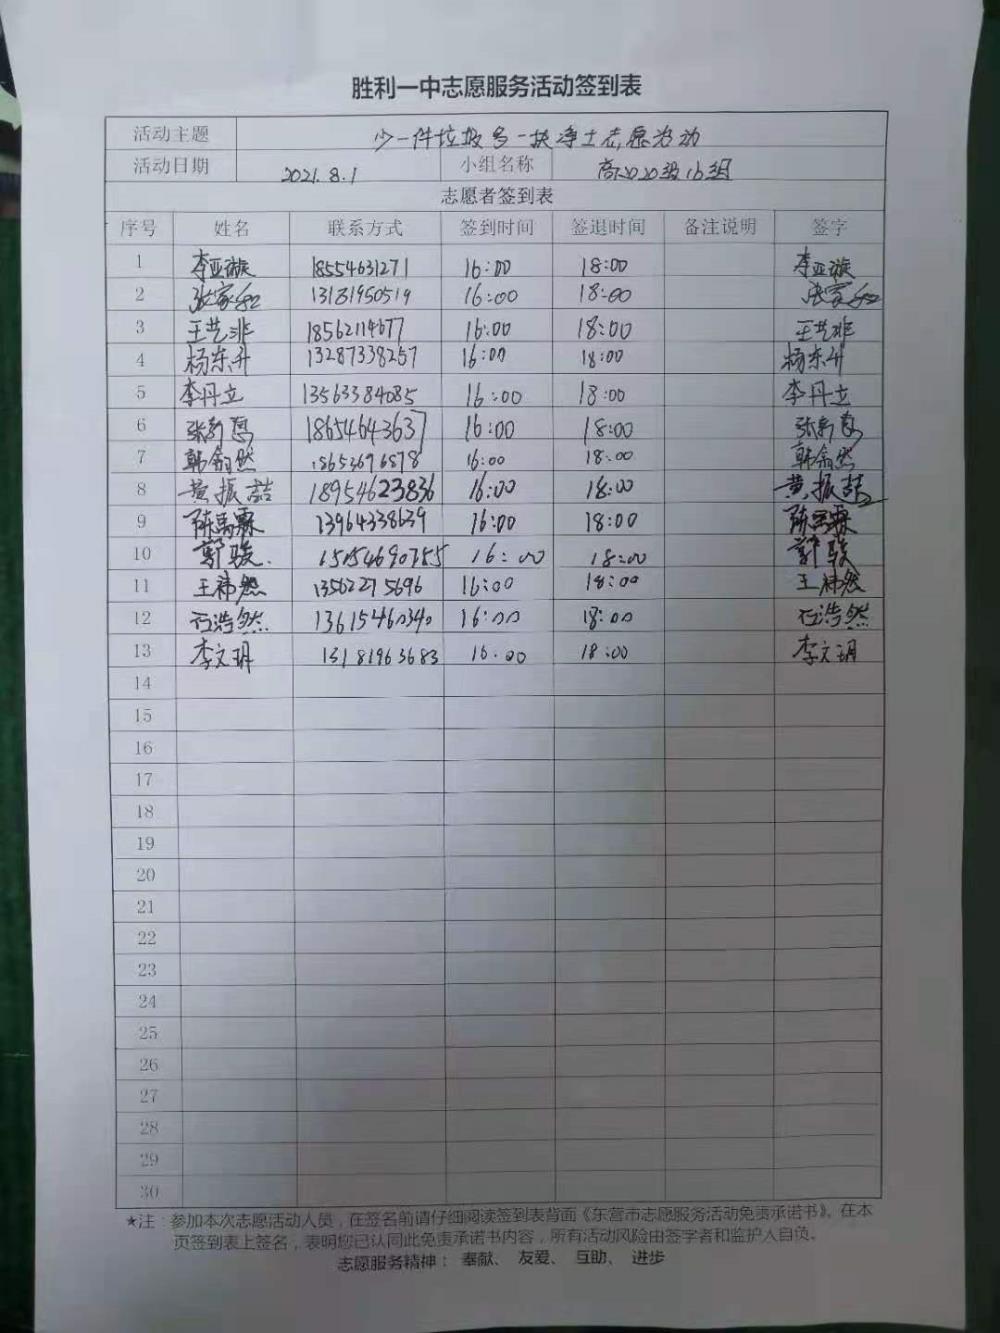 胜利一中志愿服务活动签到表
活动主题 少一件垃圾多一块净土志愿活动
活动日期 2021.8.1 小组名称 高2020级16组
志愿者签到表
序号 姓名 联系方式 签到时间 签退时间 备注说明 签字
1 李亚璇 18554631271 16:00 18:00 李亚璇
2 张家和 13181950519 16:00 18:00 张家和
3 王艺非 18562114677 16:00 18:00 王艺非
4 杨东升 13287338257 16:00 18:00 杨东升
5 李丹立 13563384085 16:00 18:00 李丹立
6 16:00 18:00
7 16:00 18:00
8 黄振喆 18954623836 16:00 18:00 黄振喆
9 13964338639 16:00 18:00
10 郭骏 16:00 18:00 郭骏
11 王祎然 13562275696 16:00 18:00 王祎然
12 石浩然 13615460340 16:00 18:00 石浩然
13 李文玥 13181963683 16:00 18:00 李文玥
14
15
16
17
18
19
20
21
22
23
24
25
26
27
28
29
30
★注：参加本次志愿活动人员，在签名前请仔细阅读签到表背面《东营市志愿服务活动免责承诺书》。在本
页签到表上签名，表明您已认同此免责承诺书内容，所有活动风险由签字者和监护人自负。
志愿服务精神：奉献、友爱、互助、进步